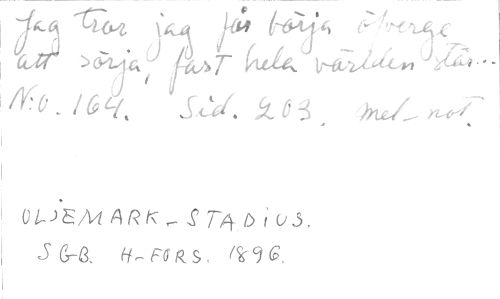 Jag tror jag får börja öfverge
att sörja, fast hela världen står...
N:o. 164. Sid. 203. mel-not.
OLJEMARK-STADIUS.
SGB. H-FORS. 1896.